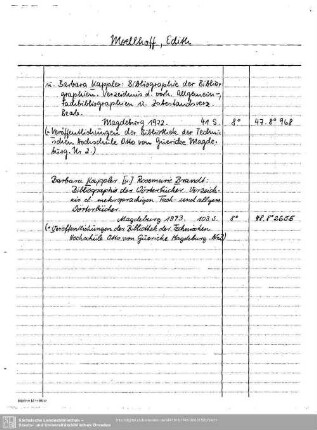 Moellhoff, Edith
u. Barbara Kappler: Bibliographie der Biblio-
graphien. Verzeichnis d. vorh. Allgemein-,
Fachbibliographien u. Zeitschriftenverz.
Magdeburg 1972. 41 S. 8° 47. 8° 968
(= Veröffentlichungen der Bibliothek der Techni-
schen Hochschule Otto von Guericke Magde-
burg. Nr 2.)
Barbara Kappler [u.] Rosemarie Brandt:
Bibliographie der Wörterbücher. Verzeich-
nis d. mehrsprachigen Fach- und allgem.
Wörterbücher.
Magdeburg 1973. 103 S. 8° 48. 8° 2655
(= Veröffentlichungen der Bibliothek der Technischen
Hochschule Otto von Guericke Magdeburg